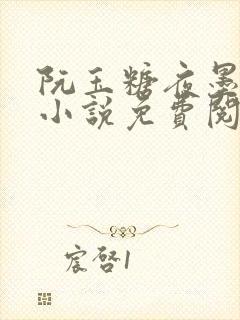 阮玉糖夜墨
小說免費閱
宸啓1